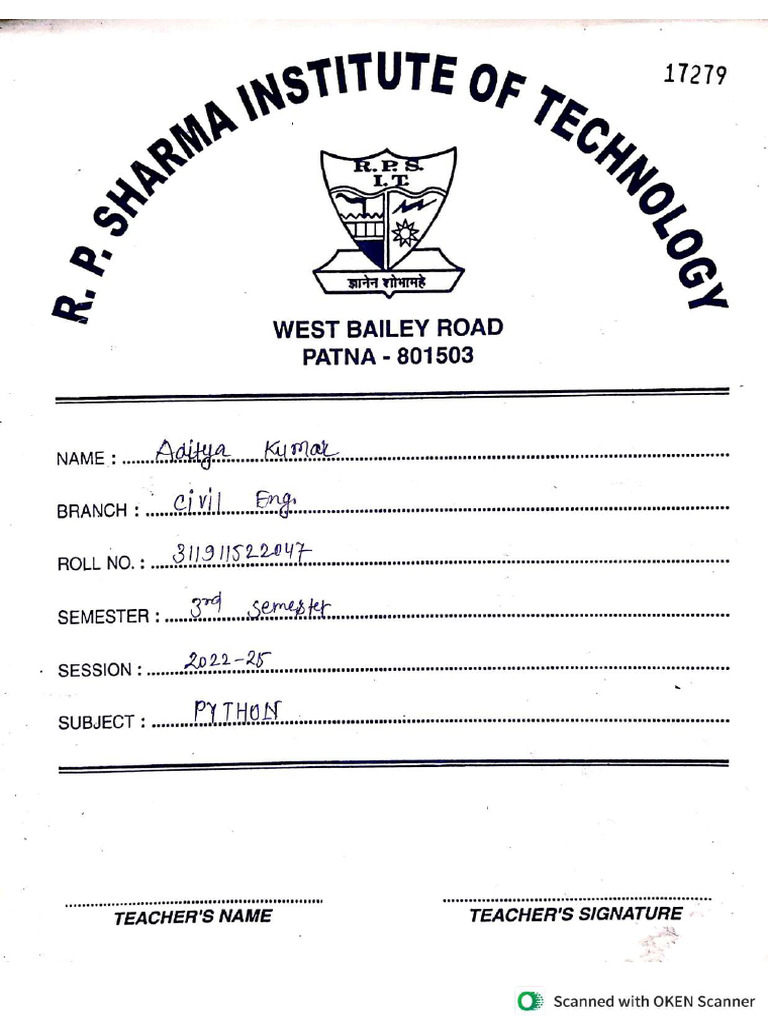 17279
R. P. SHARMA INSTITUTE OF TECHNOLOGY
R.P.S.
I.T.
ज्ञानेन शोभामहे
WEST BAILEY ROAD
PATNA - 801503
NAME : Aditya Kumar
BRANCH : Civil Eng.
ROLL NO. : 311911522047
SEMESTER : 3rd semester
SESSION : 2022-25
SUBJECT : PYTHON
TEACHER'S NAME TEACHER'S SIGNATURE
Scanned with OKEN Scanner